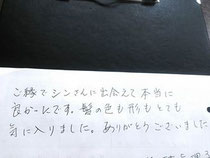 ご縁でシンさんに出会えて本当に
良かったです。髪の色も形もとても
気に入りました。ありがとうございました